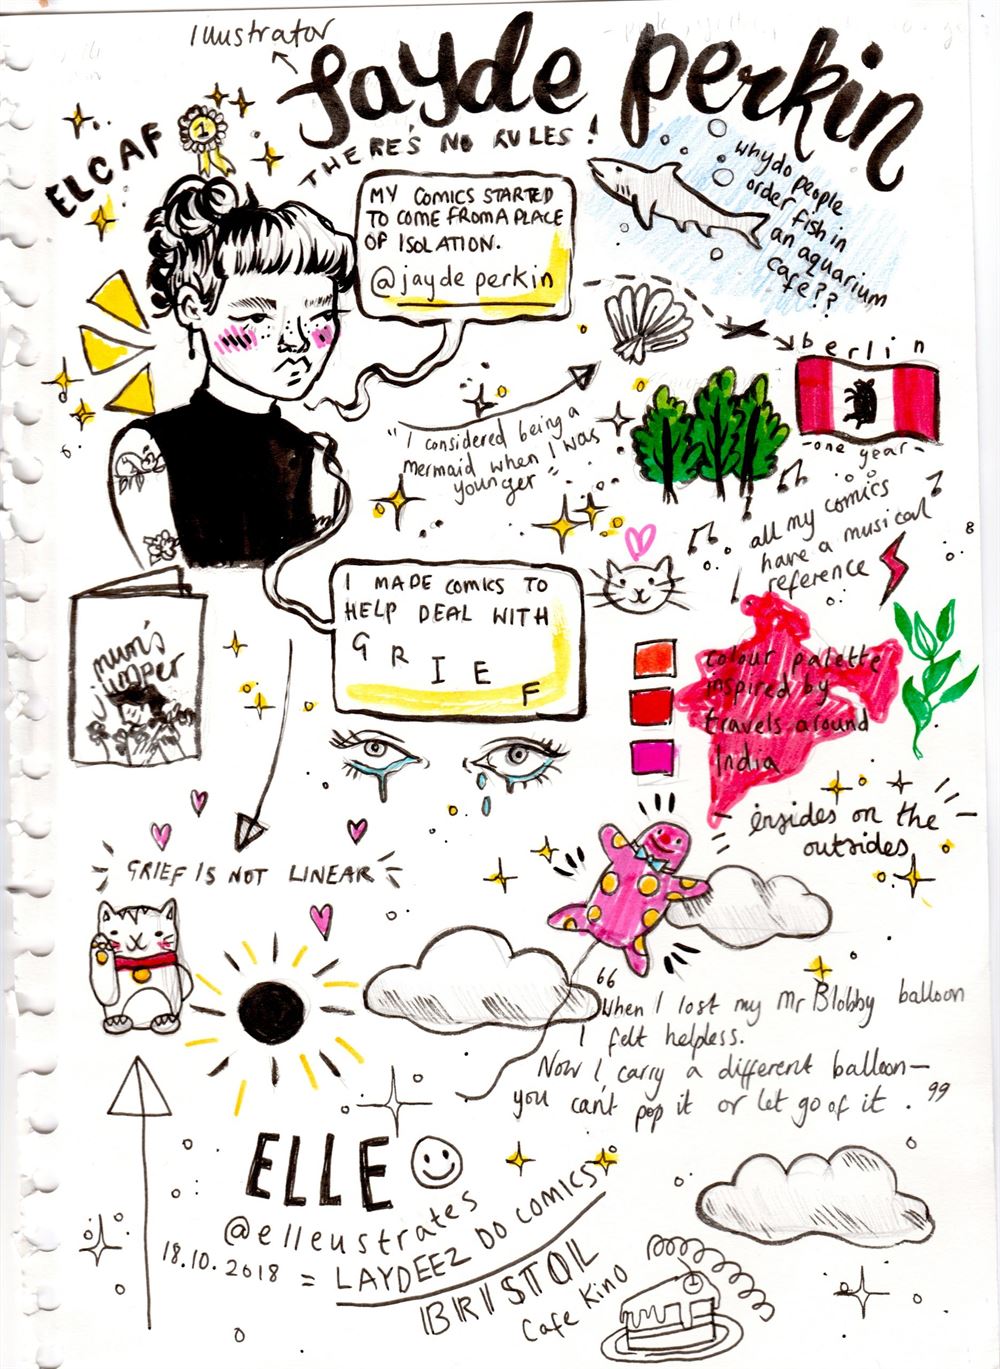 Illustrator
Jayde Perkin
THERE'S NO RULES!
ELCAF
1
MY COMICS STARTED
TO COME FROM A PLACE
OF ISOLATION.
@jayde perkin
why do people
order fish in
an aquarium
cafe??
berlin
-one year-
"I considered being a
mermaid when I was
younger"
all my comics
have a musical
reference
I MADE COMICS TO
HELP DEAL WITH
GRIEF
mum's
jumper
colour palette
inspired by
travels around
India
insides on the
outsides
GRIEF IS NOT LINEAR
"When I lost my Mr Blobby balloon
I felt helpless.
Now I carry a different balloon—
you can't pop it or let go of it."
ELLE
@elleustrates
18.10.2018 = LAYDEEZ DO COMICS
BRISTOL
Cafe Kino